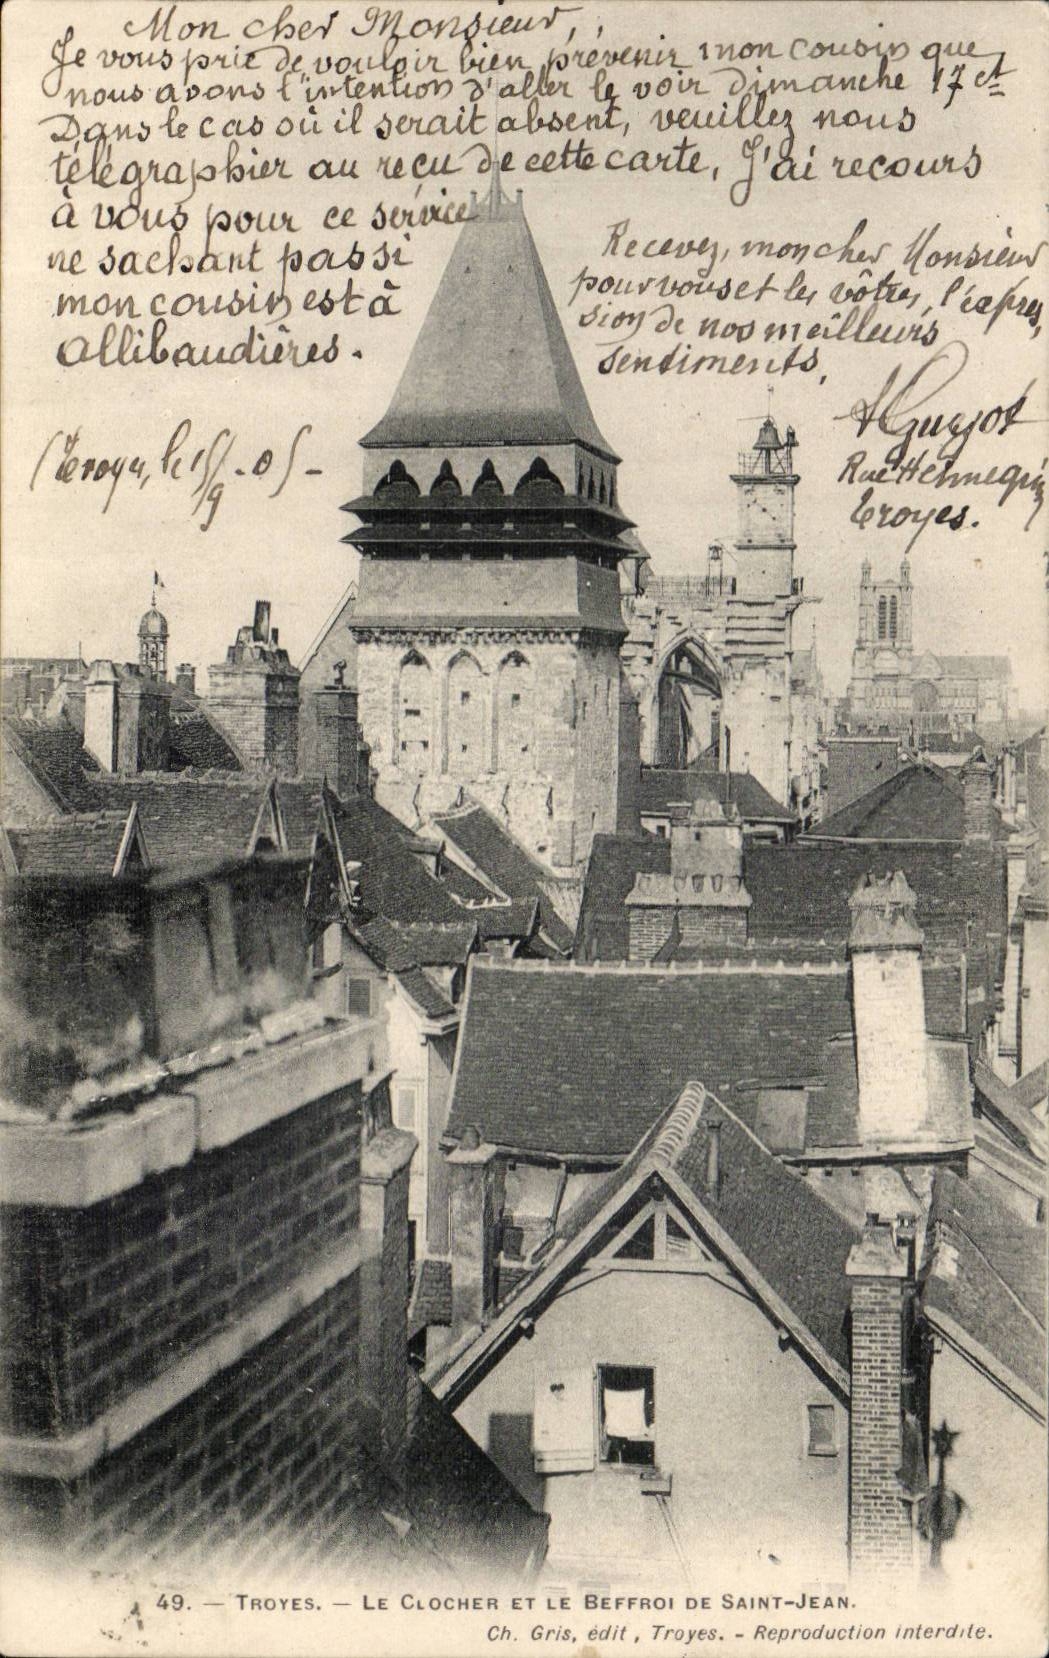 Mon cher Monsieur,
Je vous prie de vouloir bien prévenir mon cousin que
nous avons l'intention d'aller le voir dimanche 17 ct
Dans le cas où il serait absent, veuillez nous
télégraphier au reçu de cette carte, J'ai recours
à vous pour ce service
ne sachant pas si
mon cousin est à
allibaudières.
Recevez, mon cher Monsieur
pour vous et les vôtres, l'expres,
sion de nos meilleurs
sentiments,
(Troyes, le 15/9-05-
Guyot
Rue Hennequin
Troyes.
49. — TROYES. — LE CLOCHER ET LE BEFFROI DE SAINT-JEAN.
Ch. Gris, édit, Troyes. - Reproduction interdite.